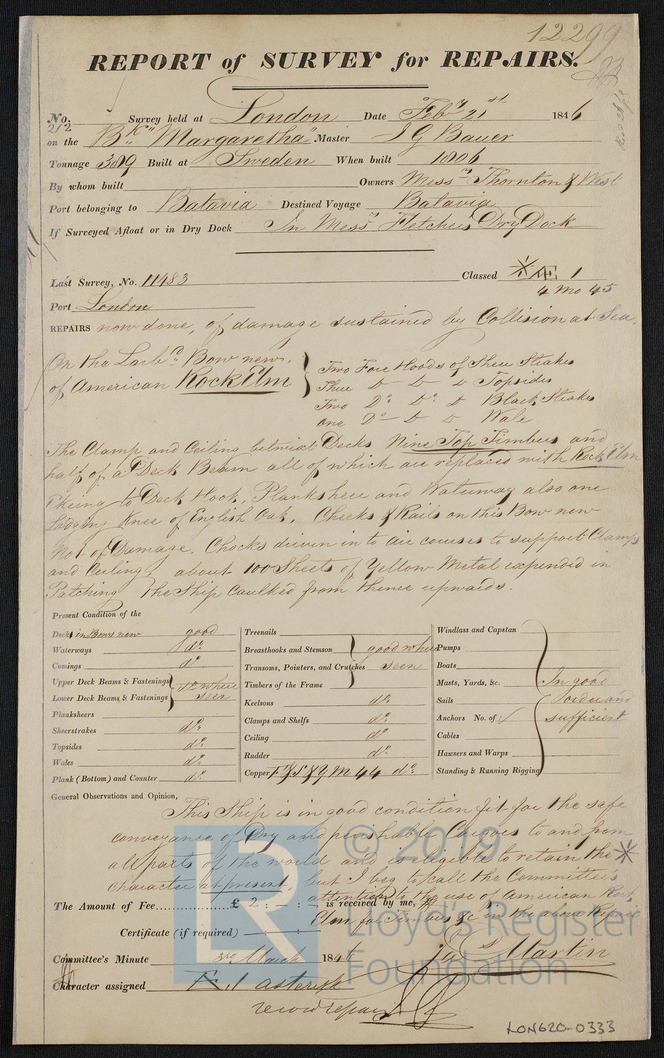 12299
REPORT of SURVEY for REPAIRS.
No. 212 Survey held at London Date Feby 21st 1846
on the Bk "Margaretha" Master J G Bauer
Tonnage 309 Built at Sweden When built 1806
By whom built Owners Messrs Thornton & West
Port belonging to Batavia Destined Voyage Batavia
If Surveyed Afloat or in Dry Dock In Messrs Fletchers Dry Dock
Last Survey, No. 11483 Classed Æ 1
Port London 4 Mo 45
REPAIRS now done, of damage sustained by Collision at Sea.
On the Larbd Bow new, Two Fore Hoods of Sheer Strakes
of American Rock Elm Three Do Do Do Topsides
Two Do Do Do Black Strakes
one Do Do Do Wale
The Clamp and Ceiling betwixt Decks Nine Top Timbers and
half of a Deck Beam all of which are replaced with Rock Elm
Ekeing to Deck Hook, Plank sheer and Waterway also one
Lodging Knee of English Oak, Cheeks & Rails on this Bow new
Not of Damage, Chocks driven in to air courses to support Clamps
and Ceiling, about 100 Sheets of Yellow Metal expended in
Patching The Ship caulked from thence upwards.
Present Condition of the
Decks in Bows new good
Waterways do
Comings do
Upper Deck Beams & Fastenings do where
Lower Deck Beams & Fastenings seen
Planksheers
Sheerstrakes do
Topsides do
Wales do
Plank (Bottom) and Counter do
Treenails
Breasthooks and Stemson good where
Transons, Pointers, and Crutches seen
Timbers of the Frame
Keelsons do
Clamps and Shelfs do
Ceiling do
Rudder do
Copper M 44 do
Windlass and Capstan
Pumps
Boats
Masts, Yards, &c. In good
Sails order and
Anchors No. of sufficient
Cables
Hawsers and Warps
Standing & Running Rigging
General Observations and Opinion,
This Ship is in good condition fit for the safe
conveyance of Dry and perishable Cargoes to and from
all parts of the world and is eligible to retain the *
character at present, but I beg to call the Committee's
attention to the use of American Rock
The Amount of Fee £ 2 : - : - is received by me,
Elm for timbers &c in the above Repair
Certificate (if required) : :
Martin
Committee's Minute 3rd March 1846
Character assigned Æ 1 asterisk
record repairs
LON620-0333
© 2019
LR
Lloyd's Register
Foundation